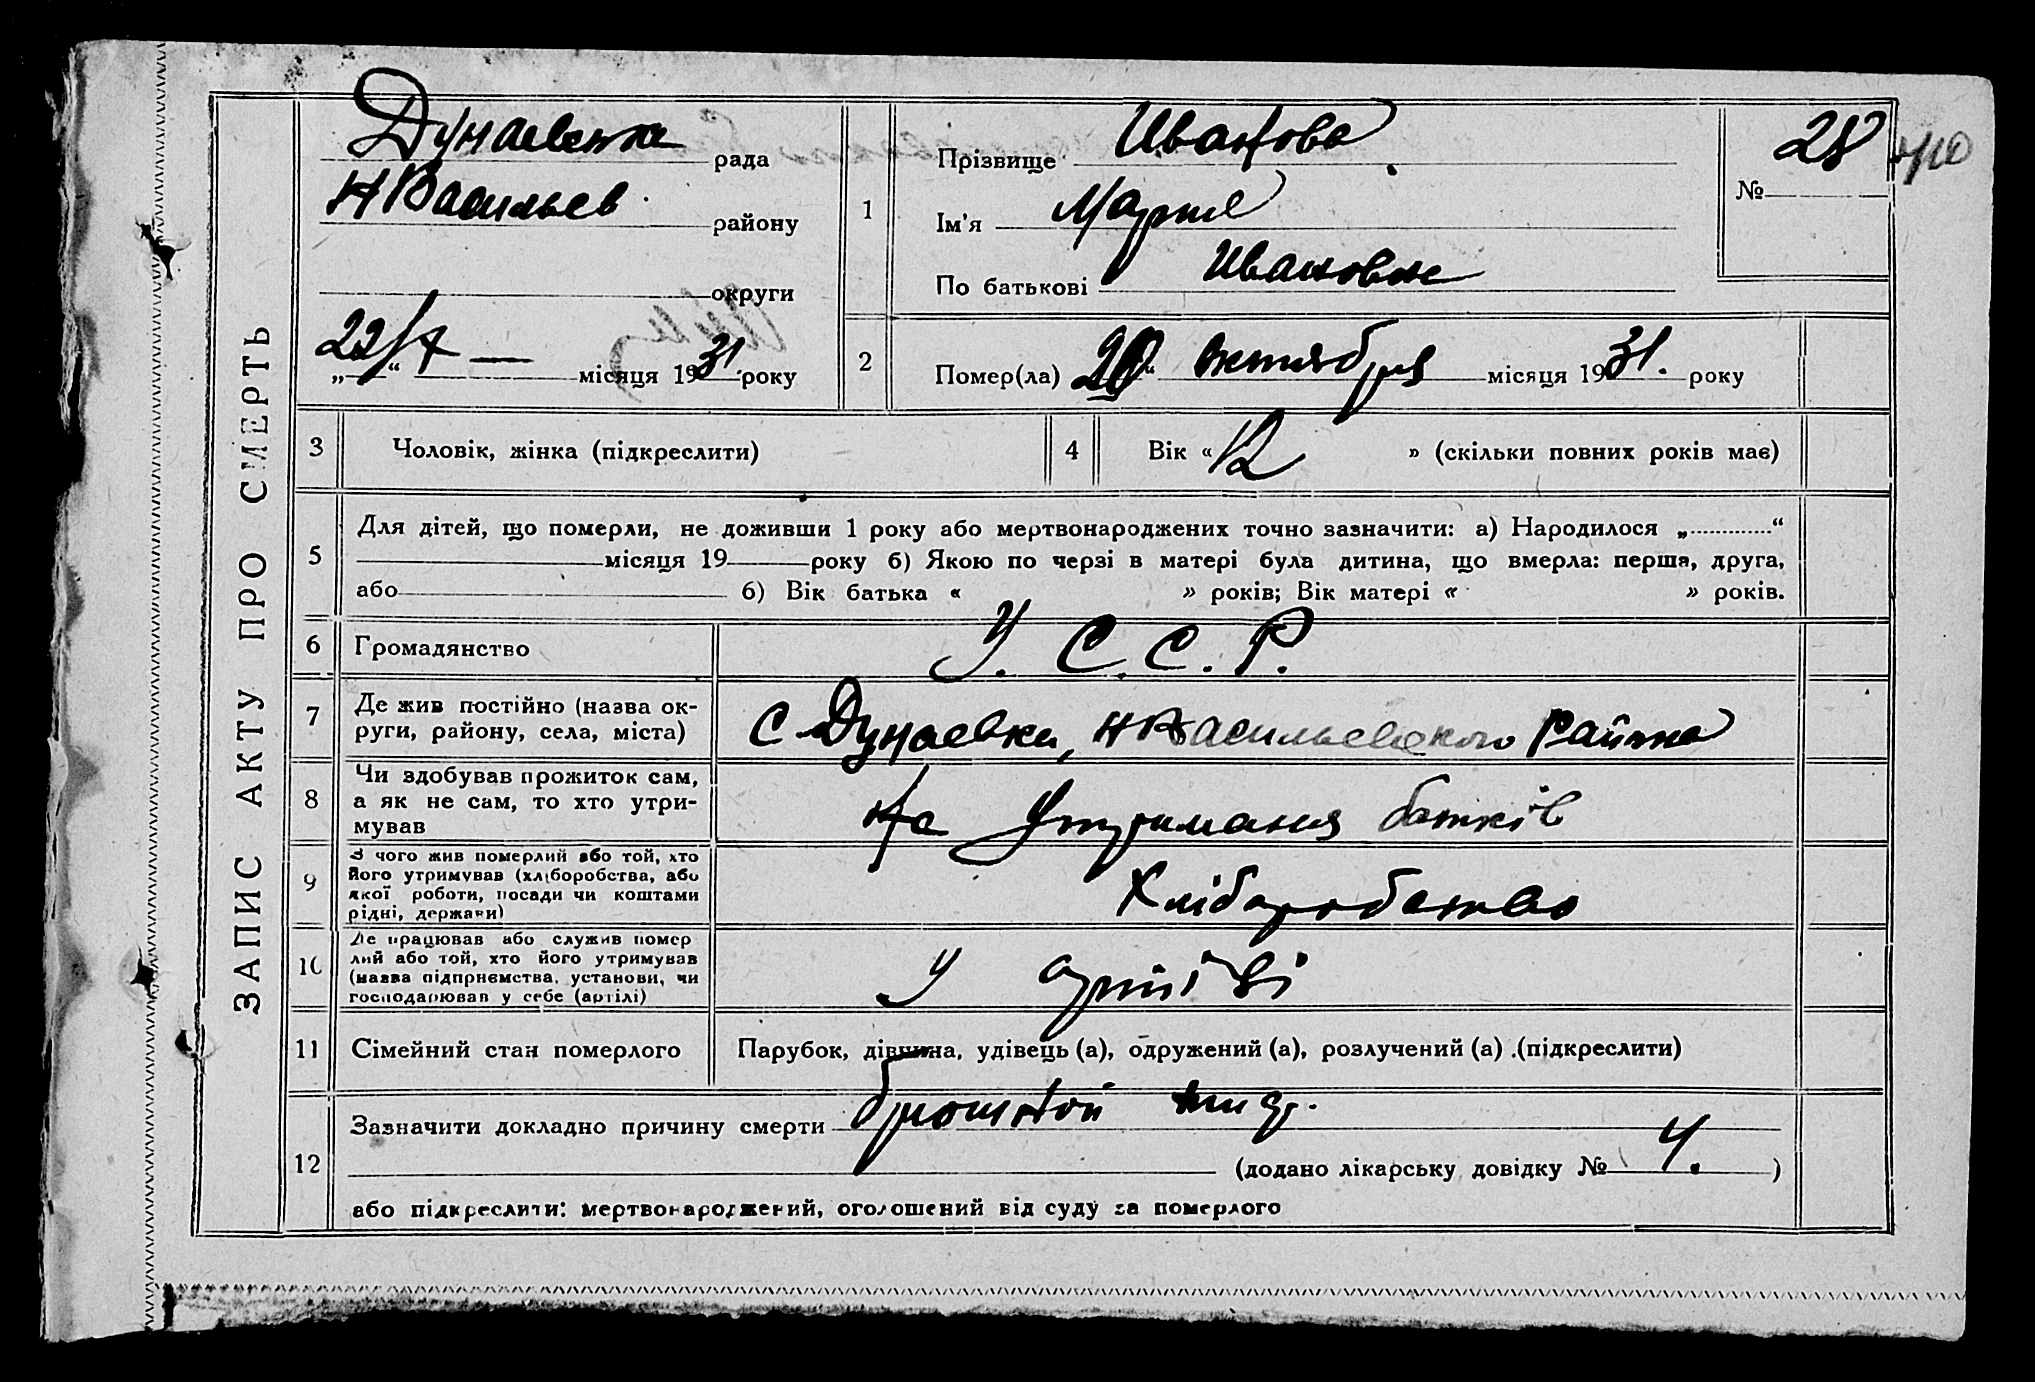 ЗАПИС АКТУ ПРО СМЕРТЬ
Дунаевська рада
НВасильев району
округи
22/X — „ “ місяця 1931 року
1
Прізвище Иванова
Ім'я Мария
По батькові Ивановна
№ 28
2
Помер(ла) 20 октября місяця 1931. року
3 Чоловік, жінка (підкреслити)
4 Вік « 12 » (скільки повних років має)
5
Для дітей, що померли, не доживши 1 року або мертвонароджених точно зазначити: а) Народилося „ “
місяця 19 року б) Якою по черзі в матері була дитина, що вмерла: перша, друга,
або б) Вік батька « » років; Вік матері « » років.
6 Громадянство У. С. С. Р.
7
Де жив постійно (назва ок-
руги, району, села, міста)
С Дунаевки, НВасильевского Района
8
Чи здобував прожиток сам,
а як не сам, то хто утри-
мував
На Утримания батків
9
З чого жив померлий або той, хто
його утримував (хліборобства, або
якої роботи, посади чи коштами
рідні, держави)
Хліборобство
10
Де працював або служив помер
лий або той, хто його утримував
(назва підприємства, установи, чи
господарював у себе (артілі)
У артілі
11 Сімейний стан померлого
Парубок, дівчина, удівець (а), одружений (а), розлучений (а) .(підкреслити)
12
Зазначити докладно причину смерти брюшной тиф.
(додано лікарську довідку № 4. )
або підкреслити: мертвонароджений, оголошений від суду за померлого